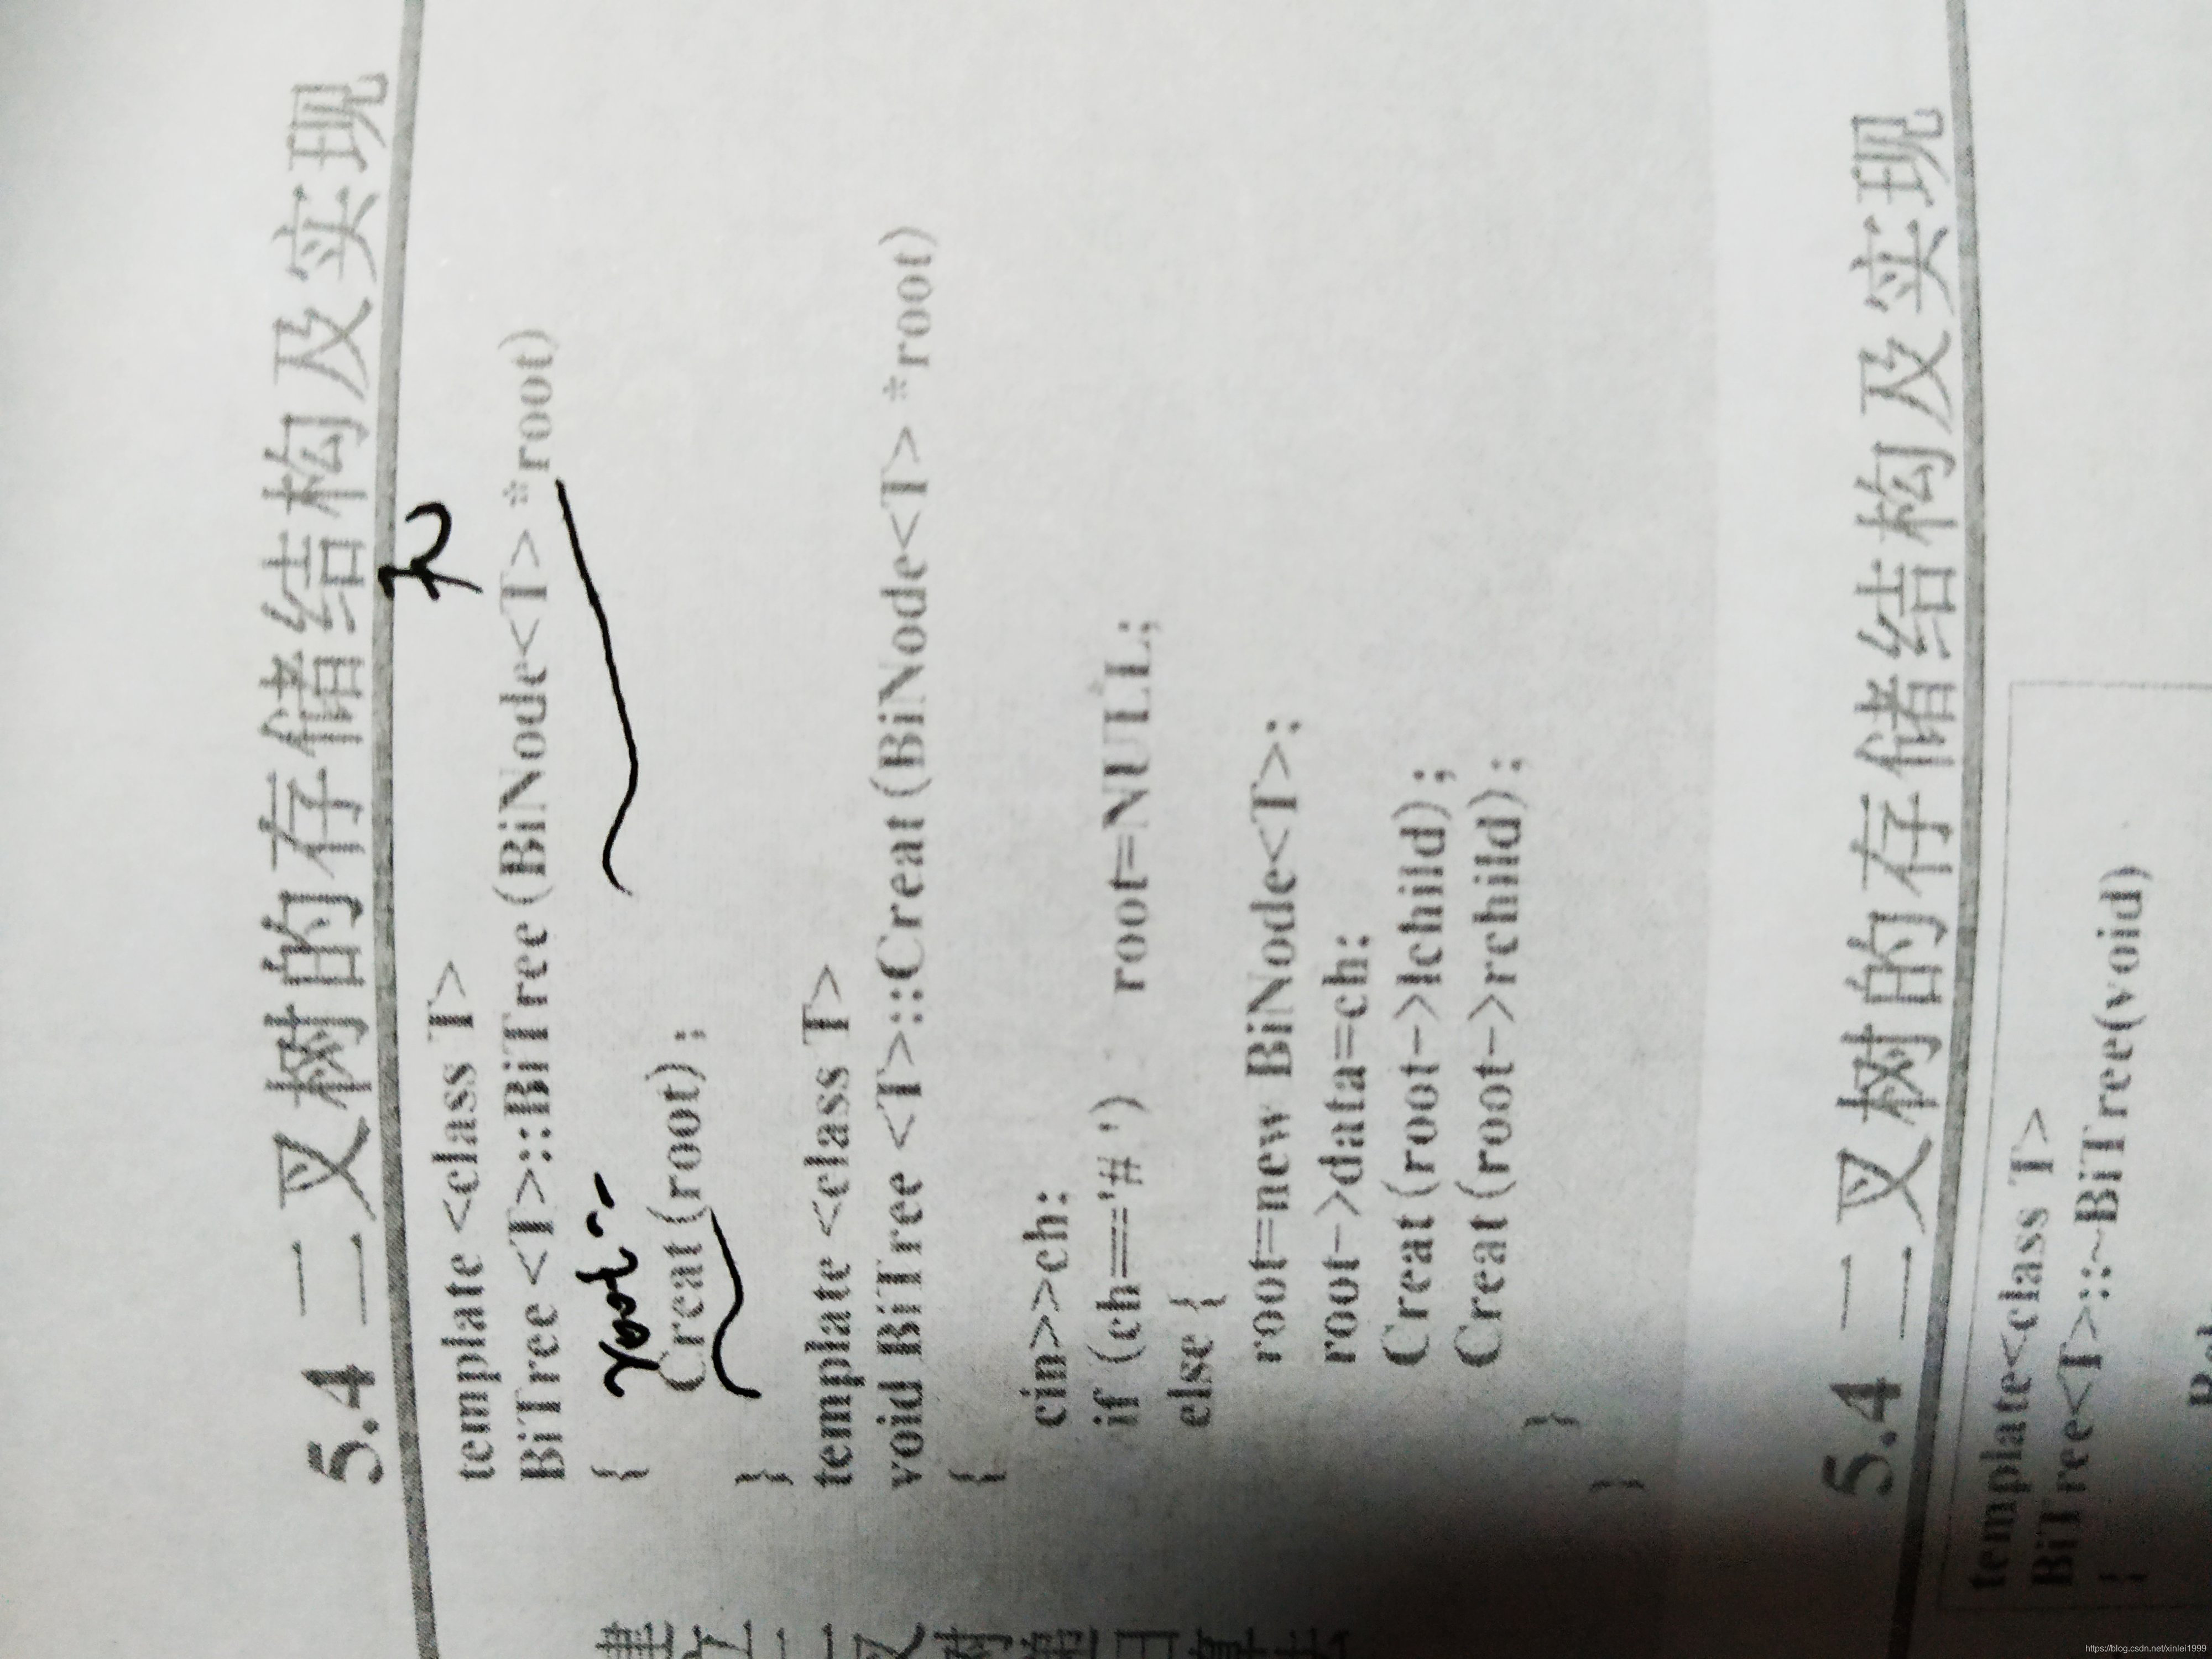 5.4 二叉树的存储结构及实现
template <class T>
BiTree <T>::BiTree (BiNode<T> *root)
{
Creat (root) ;
}
template <class T>
void BiTree <T>::Creat (BiNode<T> *root)
{
cin>>ch;
if (ch=='# ') root=NULL;
else {
root=new BiNode<T>;
root->data=ch;
Creat (root->lchild) ;
Creat (root->rchild) ;
}
}
5.4 二叉树的存储结构及实现
template<class T>
BiTree<T>::~BiTree(void)
{
https://blog.csdn.net/xinlei1999